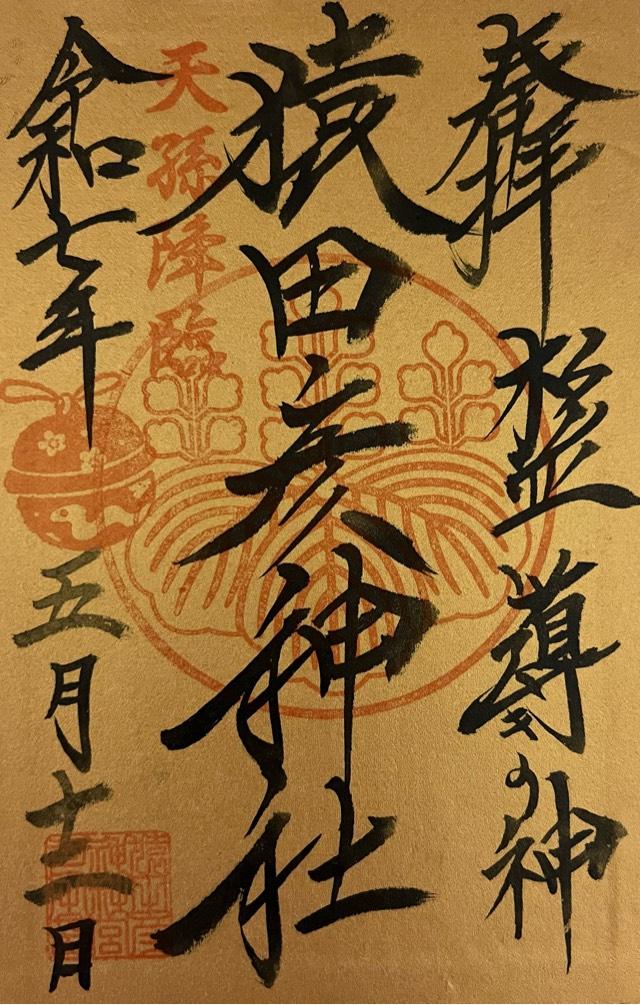 奉拝
導きの神
猿田彦神社
天孫降臨
令和七年
五月十二日